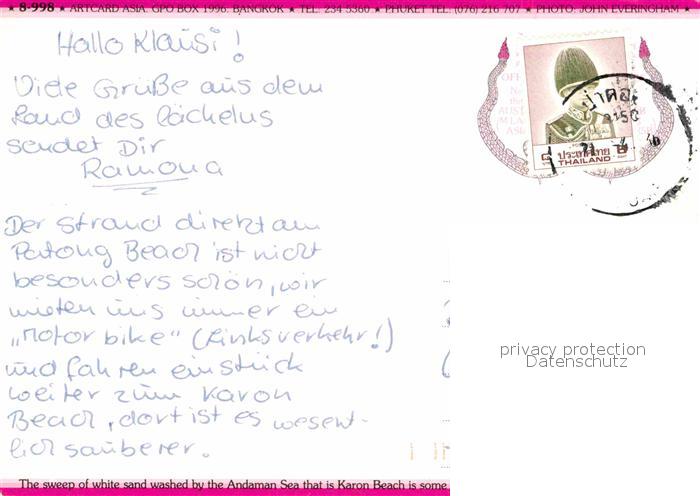 ★ 8-998 ★ ARTCARD ASIA. GPO BOX 1996. BANGKOK ★ TEL: 234 5360 ★ PHUKET TEL: (076) 216 707 ★ PHOTO: JOHN EVERINGHAM ★
Hallo Klausi!
Viele Grüße aus dem
Land des Lächelns
sendet Dir
Ramona
Der Strand direkt am
Patong Beach ist nicht
besonders schön, wir
mieten uns immer ein
„Motor bike" (Linksverkehr!)
und fahren ein Stück
weiter zum Karon
Beach, dort ist es wesent-
lich sauberer.
ป่าตอง
ประเทศไทย
THAILAND
privacy protection
Datenschutz
The sweep of white sand washed by the Andaman Sea that is Karon Beach is some